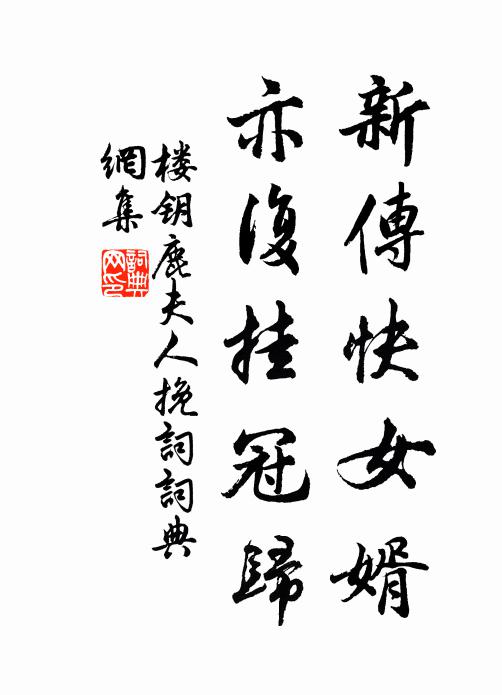 新傳快女婿
亦復挂冠歸
楼钥鹿夫人挽詞詞典
網集
詞典
网印